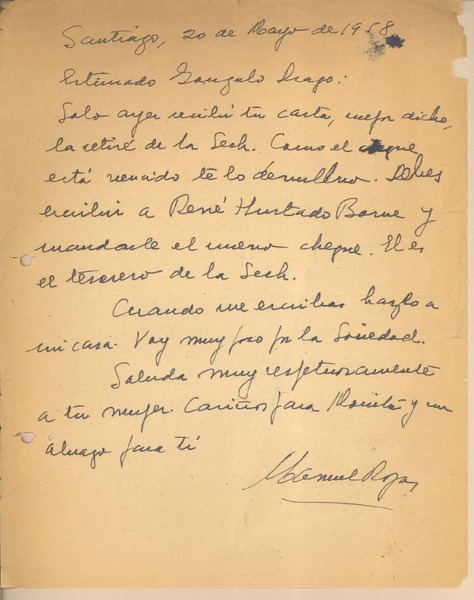 Santiago, 20 de Mayo de 1958
Estimado Gonzalo Drago:
Solo ayer recibí tu carta, mejor dicho,
la retiré de la Sech. Como el cheque
está vencido te lo devuelvo. Debes
escribir a René Hurtado Borne y
mandarle el nuevo cheque. El es
el tesorero de la Sech.
Cuando me escribas hazlo a
mi casa. Voy muy poco por la Sociedad.
Saluda muy respetuosamente
a tu mujer. Cariños para y un
abrazo para ti
Manuel Rojas